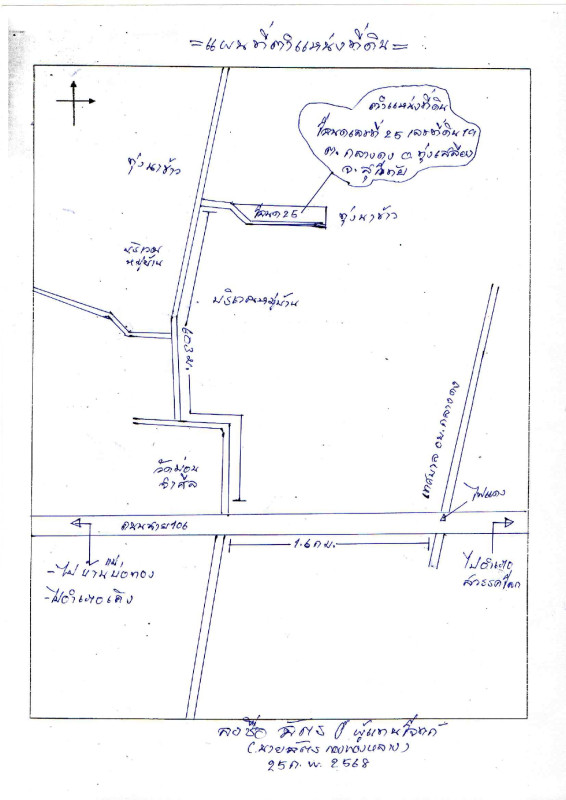 =แผนที่ตำแหน่งที่ดิน=
ตำแหน่งที่ดิน
โฉนดเลขที่ 25 เลขที่ดิน 19
ต. กลางดง อ. ทุ่งเสลี่ยม
จ. สุโขทัย
ทุ่งนาข้าว
โฉนด 25
ทุ่งนาข้าว
บริเวณ
หมู่บ้าน
บริเวณหมู่บ้าน
603 ม.
เทศบาล ต.กลางดง
วัดม่อน
จำศีล
ไฟแดง
ถนนสาย 106
1.6 ก.ม.
- ไปบ้านแม่บ่อทอง
- ไปอำเภอเถิน
ไปอำเภอ
สวรรคโลก
ลงชื่อ ฉัตร ผู้แทนโจทก์
25 ก.พ. 2568